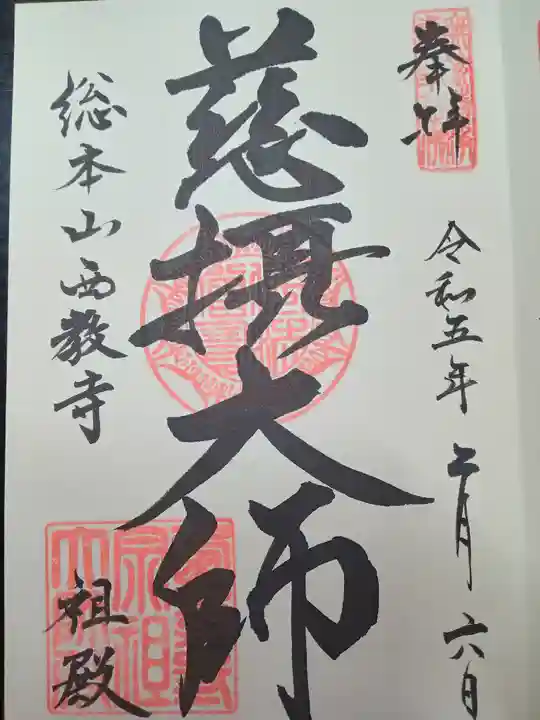 奉拝
令和五年二月六日
慈摂大師
総本山西教寺
祖殿